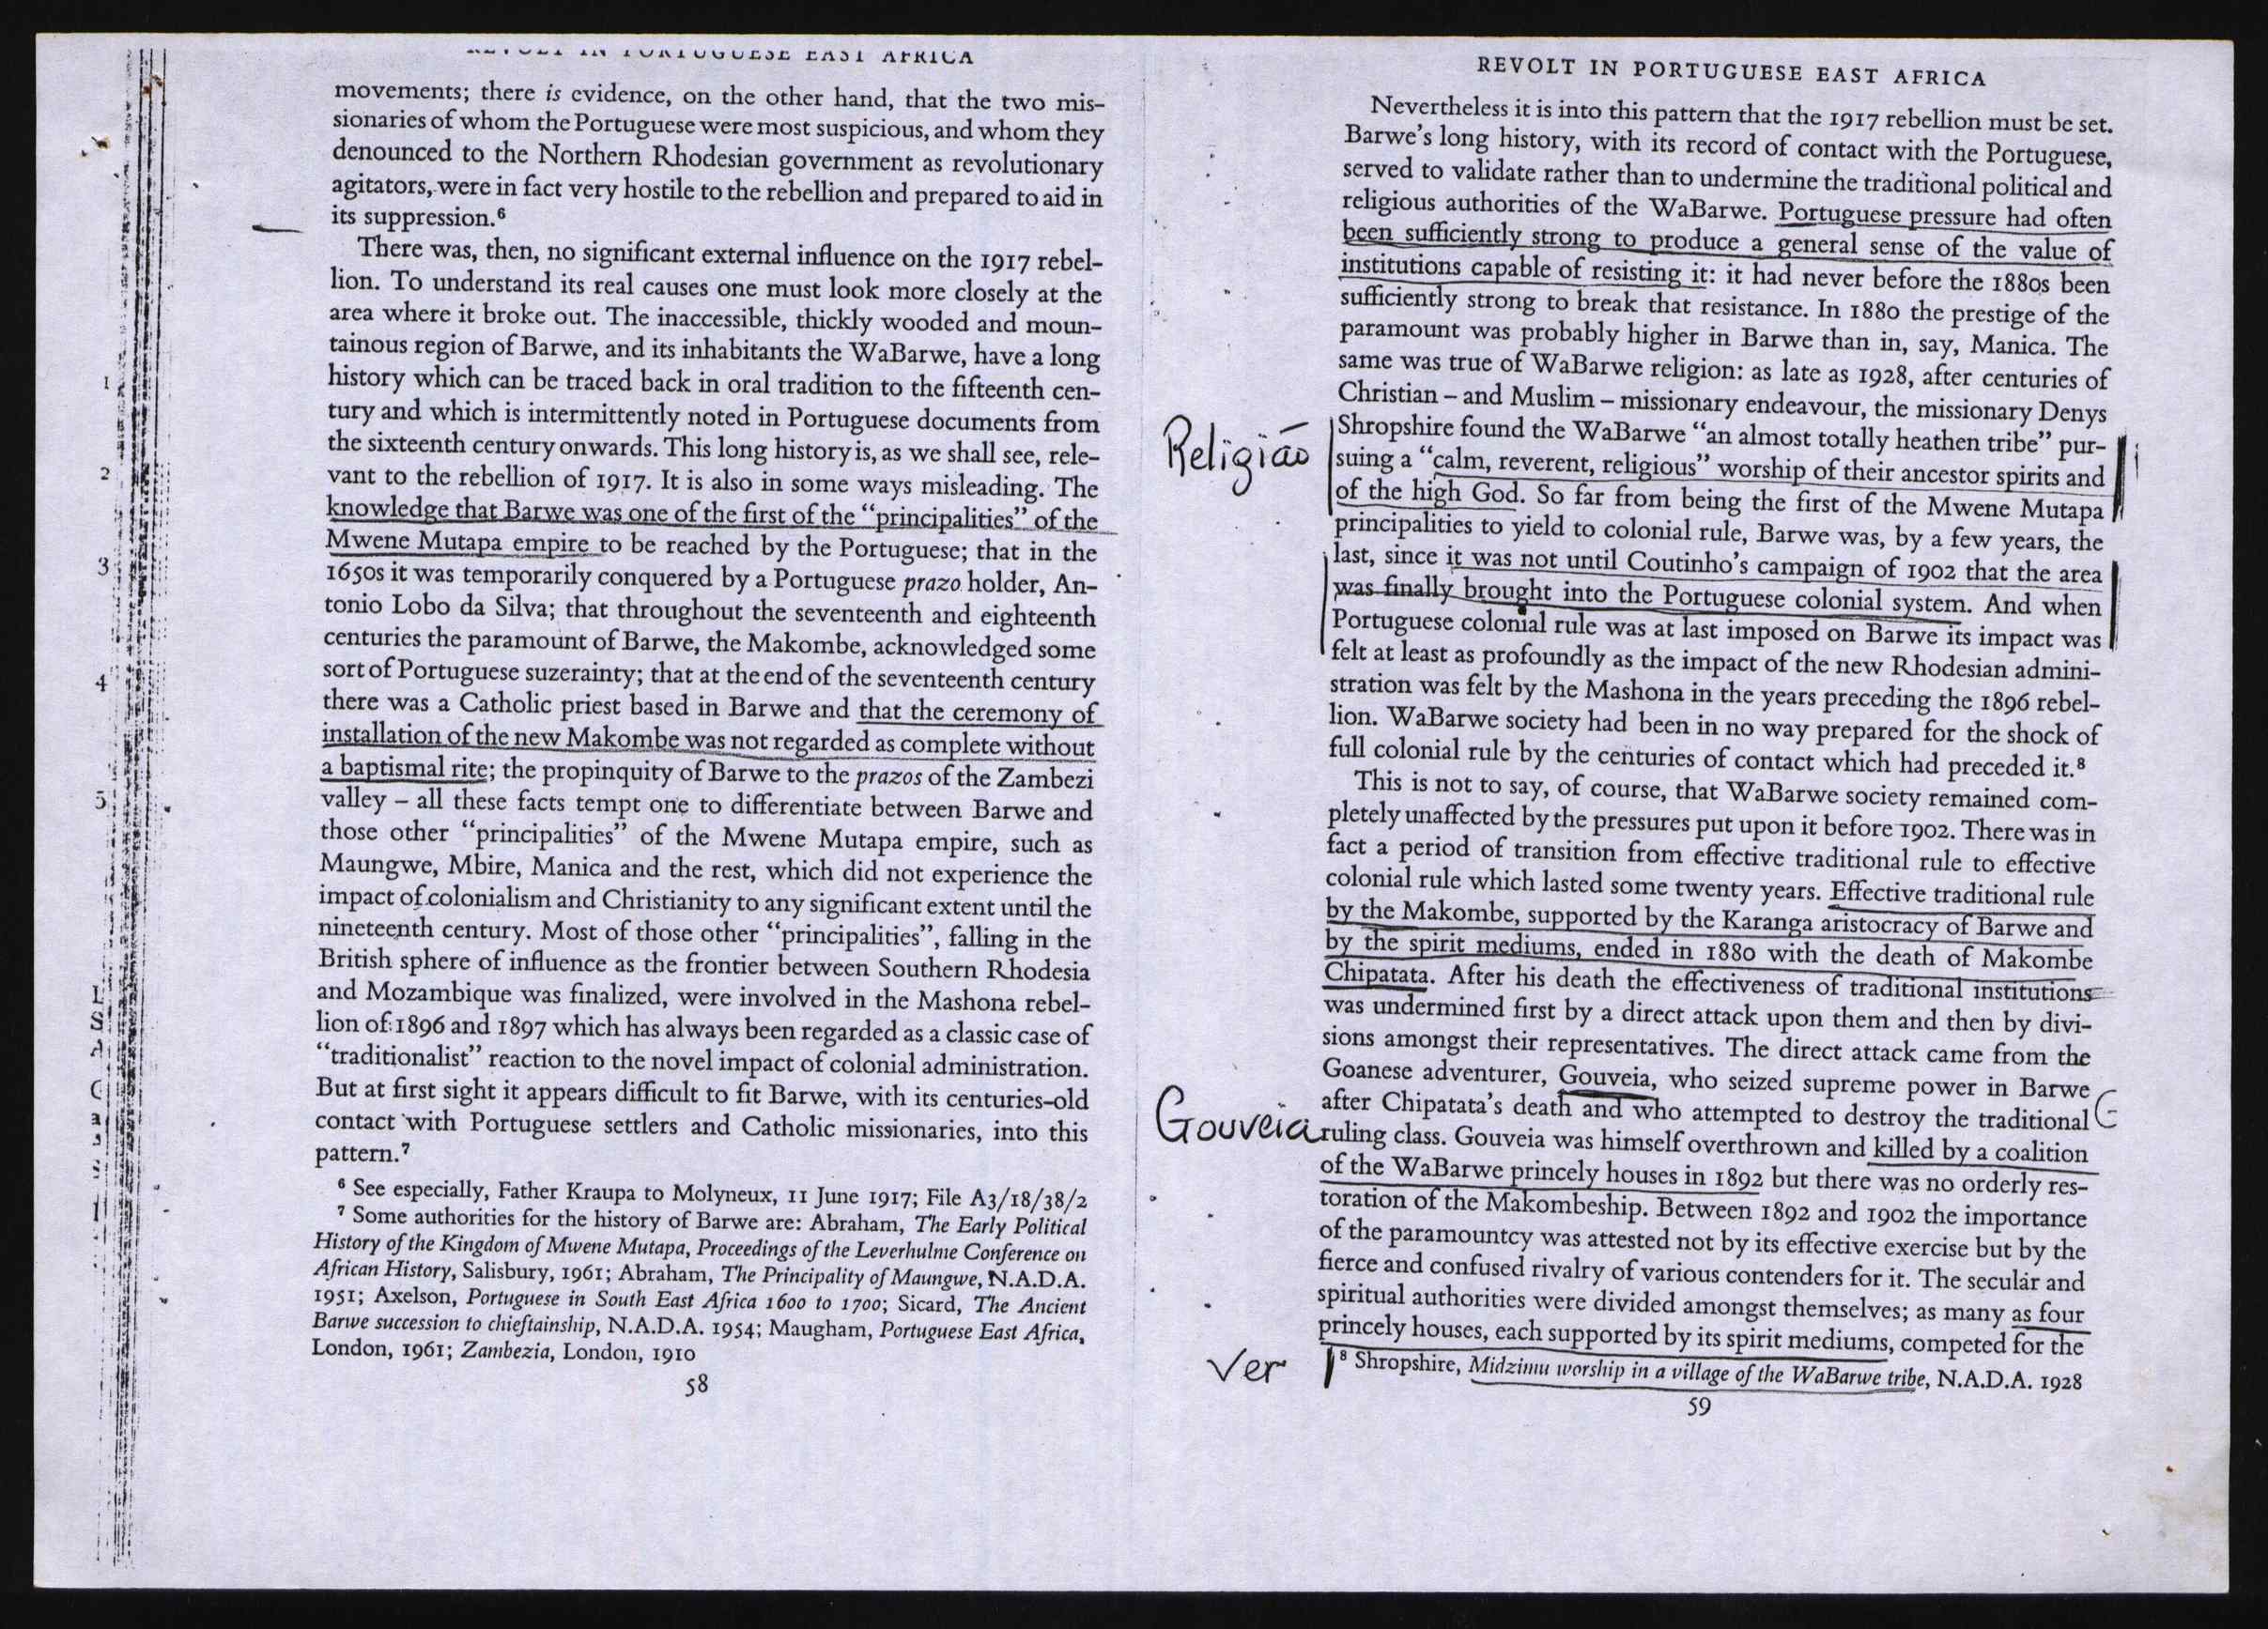 REVOLT IN PORTUGUESE EAST AFRICA
movements; there is evidence, on the other hand, that the two mis-
sionaries of whom the Portuguese were most suspicious, and whom they
denounced to the Northern Rhodesian government as revolutionary
agitators, were in fact very hostile to the rebellion and prepared to aid in
its suppression.⁶
There was, then, no significant external influence on the 1917 rebel-
lion. To understand its real causes one must look more closely at the
area where it broke out. The inaccessible, thickly wooded and moun-
tainous region of Barwe, and its inhabitants the WaBarwe, have a long
history which can be traced back in oral tradition to the fifteenth cen-
tury and which is intermittently noted in Portuguese documents from
the sixteenth century onwards. This long history is, as we shall see, rele-
vant to the rebellion of 1917. It is also in some ways misleading. The
knowledge that Barwe was one of the first of the “principalities” of the
Mwene Mutapa empire to be reached by the Portuguese; that in the
1650s it was temporarily conquered by a Portuguese prazo holder, An-
tonio Lobo da Silva; that throughout the seventeenth and eighteenth
centuries the paramount of Barwe, the Makombe, acknowledged some
sort of Portuguese suzerainty; that at the end of the seventeenth century
there was a Catholic priest based in Barwe and that the ceremony of
installation of the new Makombe was not regarded as complete without
a baptismal rite; the propinquity of Barwe to the prazos of the Zambezi
valley – all these facts tempt one to differentiate between Barwe and
those other “principalities” of the Mwene Mutapa empire, such as
Maungwe, Mbire, Manica and the rest, which did not experience the
impact of colonialism and Christianity to any significant extent until the
nineteenth century. Most of those other “principalities”, falling in the
British sphere of influence as the frontier between Southern Rhodesia
and Mozambique was finalized, were involved in the Mashona rebel-
lion of 1896 and 1897 which has always been regarded as a classic case of
“traditionalist” reaction to the novel impact of colonial administration.
But at first sight it appears difficult to fit Barwe, with its centuries-old
contact with Portuguese settlers and Catholic missionaries, into this
pattern.⁷
⁶ See especially, Father Kraupa to Molyneux, 11 June 1917; File A3/18/38/2
⁷ Some authorities for the history of Barwe are: Abraham, The Early Political
History of the Kingdom of Mwene Mutapa, Proceedings of the Leverhulme Conference on
African History, Salisbury, 1961; Abraham, The Principality of Maungwe, N.A.D.A.
1951; Axelson, Portuguese in South East Africa 1600 to 1700; Sicard, The Ancient
Barwe succession to chieftainship, N.A.D.A. 1954; Maugham, Portuguese East Africa,
London, 1961; Zambezia, London, 1910
58
1
2
3
4
5
REVOLT IN PORTUGUESE EAST AFRICA
Nevertheless it is into this pattern that the 1917 rebellion must be set.
Barwe’s long history, with its record of contact with the Portuguese,
served to validate rather than to undermine the traditional political and
religious authorities of the WaBarwe. Portuguese pressure had often
been sufficiently strong to produce a general sense of the value of
institutions capable of resisting it: it had never before the 1880s been
sufficiently strong to break that resistance. In 1880 the prestige of the
paramount was probably higher in Barwe than in, say, Manica. The
same was true of WaBarwe religion: as late as 1928, after centuries of
Christian – and Muslim – missionary endeavour, the missionary Denys
Shropshire found the WaBarwe “an almost totally heathen tribe” pur-
Religião
suing a “calm, reverent, religious” worship of their ancestor spirits and
of the high God. So far from being the first of the Mwene Mutapa
principalities to yield to colonial rule, Barwe was, by a few years, the
last, since it was not until Coutinho’s campaign of 1902 that the area
was finally brought into the Portuguese colonial system. And when
Portuguese colonial rule was at last imposed on Barwe its impact was
felt at least as profoundly as the impact of the new Rhodesian admini-
stration was felt by the Mashona in the years preceding the 1896 rebel-
lion. WaBarwe society had been in no way prepared for the shock of
full colonial rule by the centuries of contact which had preceded it.⁸
This is not to say, of course, that WaBarwe society remained com-
pletely unaffected by the pressures put upon it before 1902. There was in
fact a period of transition from effective traditional rule to effective
colonial rule which lasted some twenty years. Effective traditional rule
by the Makombe, supported by the Karanga aristocracy of Barwe and
by the spirit mediums, ended in 1880 with the death of Makombe
Chipatata. After his death the effectiveness of traditional institutions
was undermined first by a direct attack upon them and then by divi-
sions amongst their representatives. The direct attack came from the
Goanese adventurer, Gouveia, who seized supreme power in Barwe
after Chipatata’s death and who attempted to destroy the traditional
G
Gouveia
ruling class. Gouveia was himself overthrown and killed by a coalition
of the WaBarwe princely houses in 1892 but there was no orderly res-
toration of the Makombeship. Between 1892 and 1902 the importance
of the paramountcy was attested not by its effective exercise but by the
fierce and confused rivalry of various contenders for it. The secular and
spiritual authorities were divided amongst themselves; as many as four
princely houses, each supported by its spirit mediums, competed for the
Ver
⁸ Shropshire, Midzimu worship in a village of the WaBarwe tribe, N.A.D.A. 1928
59